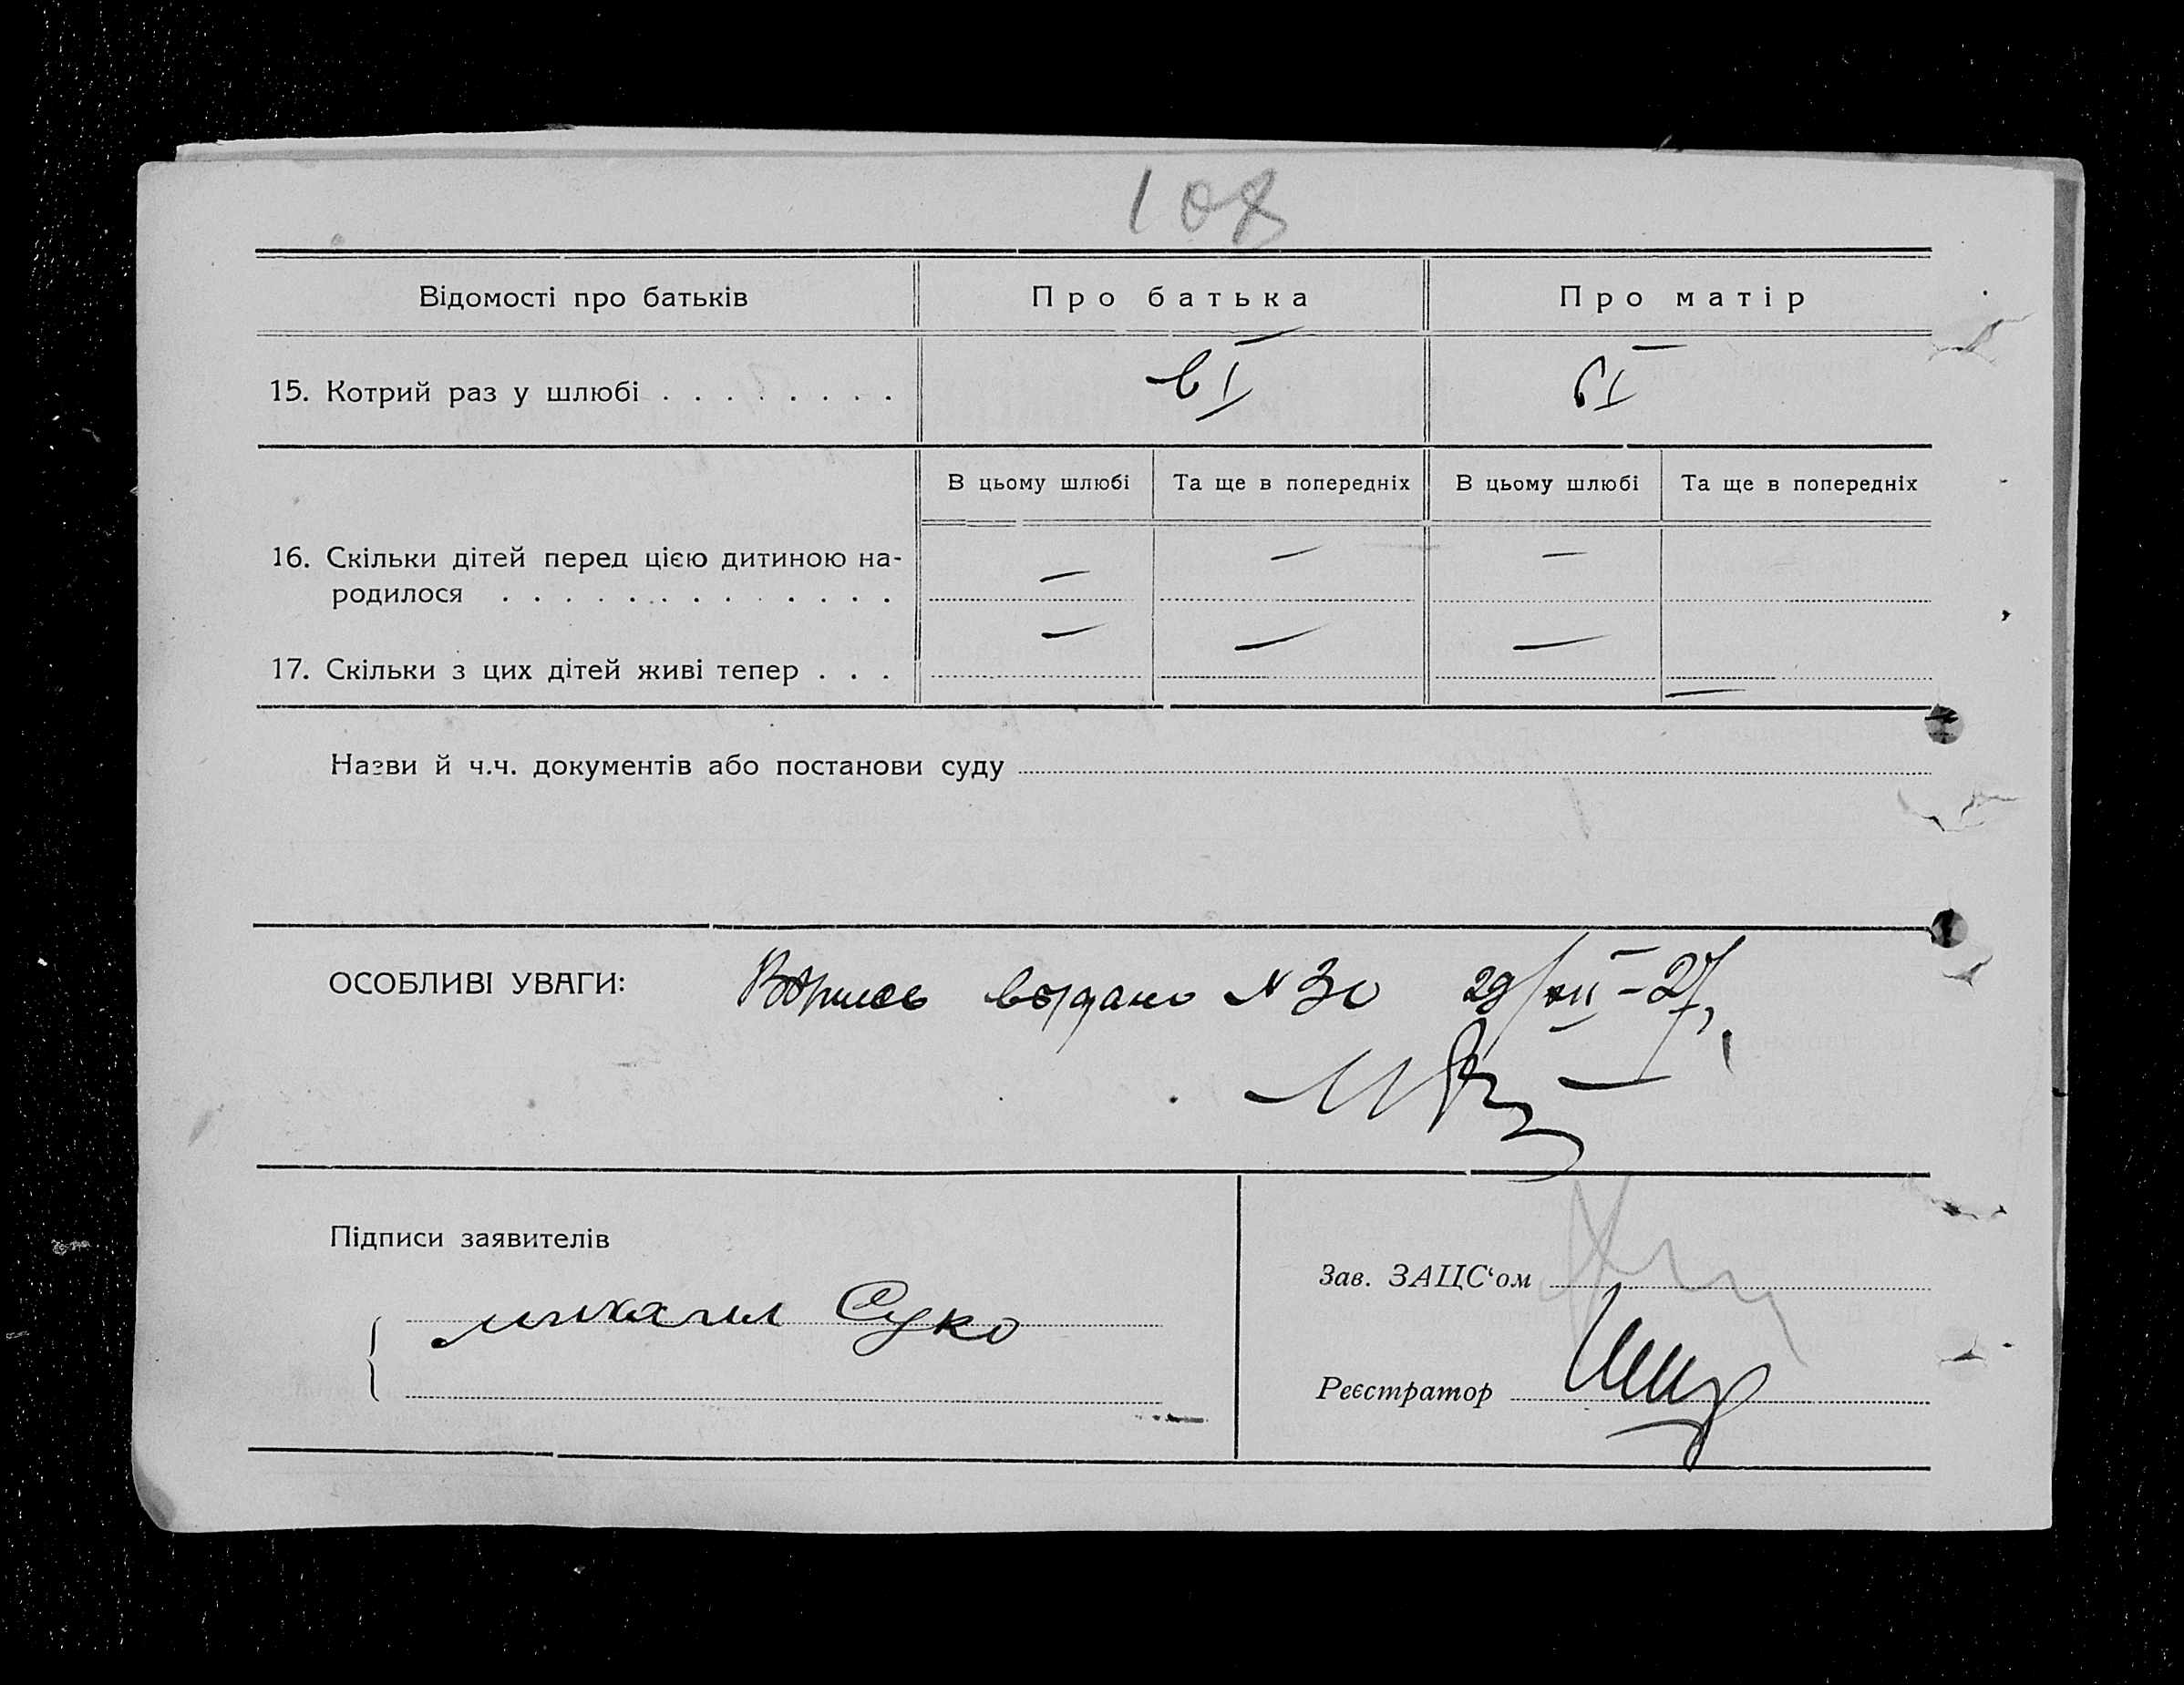 108
Відомості про батьків
Про батька
Про матір
15. Котрий раз у шлюбі . . . . . . . .
в I
в I
В цьому шлюбі
Та ще в попередніх
В цьому шлюбі
Та ще в попередніх
16. Скільки дітей перед цією дитиною на-
родилося . . . . . . . . . . . . .
— — —
17. Скільки з цих дітей живі тепер . . .
— — — —
Назви й ч.ч. документів або постанови суду
ОСОБЛИВІ УВАГИ:
выдано № 30 29/XII-27
Підписи заявителів
михаил Суко
Зав. ЗАЦС'ом
Реєстратор